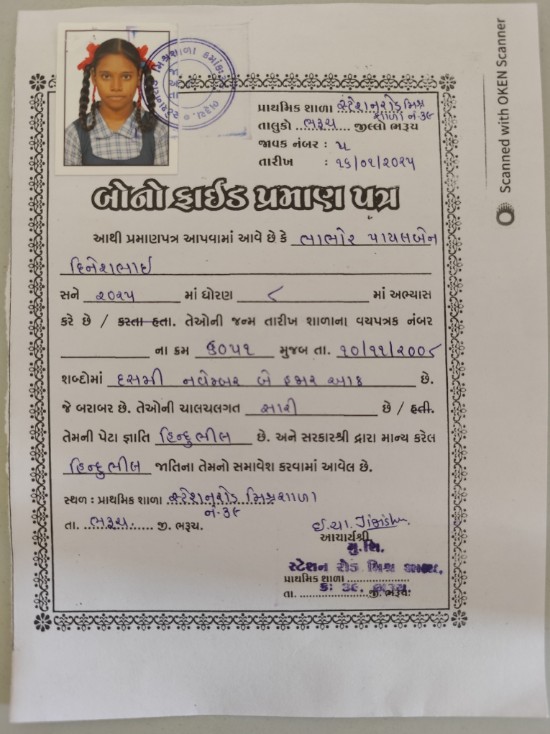 પ્રાથમિક શાળા સ્ટેશનરોડ મિશ્ર
શાળા નં-૩૯
તાલુકો ભરૂચ જીલ્લો ભરૂચ
જાવક નંબર : ૫
તારીખ : ૧૬/૦૧/૨૦૨૫
બોનો ફાઈડ પ્રમાણ પત્ર
આથી પ્રમાણપત્ર આપવામાં આવે છે કે ભાભોર પાયલબેન
દિનેશભાઈ
સને ૨૦૨૫ માં ધોરણ ૮ માં અભ્યાસ
કરે છે / કરતા હતા. તેઓની જન્મ તારીખ શાળાના વયપત્રક નંબર
ના ક્રમ ૬૦૫૧ મુજબ તા. ૧૦/૧૧/૨૦૦૮
શબ્દોમાં દસમી નવેમ્બર બે હજાર આઠ છે.
જે બરાબર છે. તેઓની ચાલચલગત સારી છે / હતી.
તેમની પેટા જ્ઞાતિ હિન્દુભીલ છે. અને સરકારશ્રી દ્વારા માન્ય કરેલ
હિન્દુભીલ જાતિના તેમનો સમાવેશ કરવામાં આવેલ છે.
સ્થળ : પ્રાથમિક શાળા સ્ટેશનરોડ મિશ્રશાળા
નં-૩૯
તા. ભરૂચ જી. ભરૂચ.
ઈ.ચા.
આચાર્યશ્રી
મુ.શિ.
સ્ટેશન રોડ મિશ્ર શાળા,
પ્રાથમિક શાળા
ક્રઃ ૩૯. ભરૂચ
તા. જી. ભરૂચ.
Scanned with OKEN Scanner